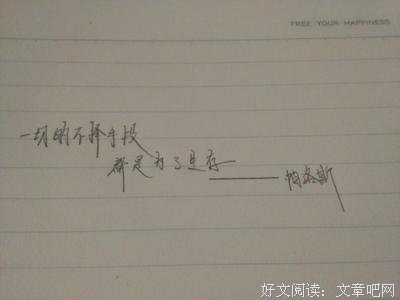 FREE YOUR HAPPINESS
一切的不择手段
都是为了生存
——帕洛斯
好文阅读：文章吧网